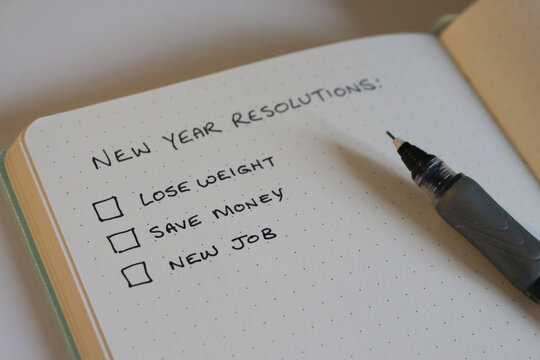 NEW YEAR RESOLUTIONS:
LOSE WEIGHT
SAVE MONEY
NEW JOB